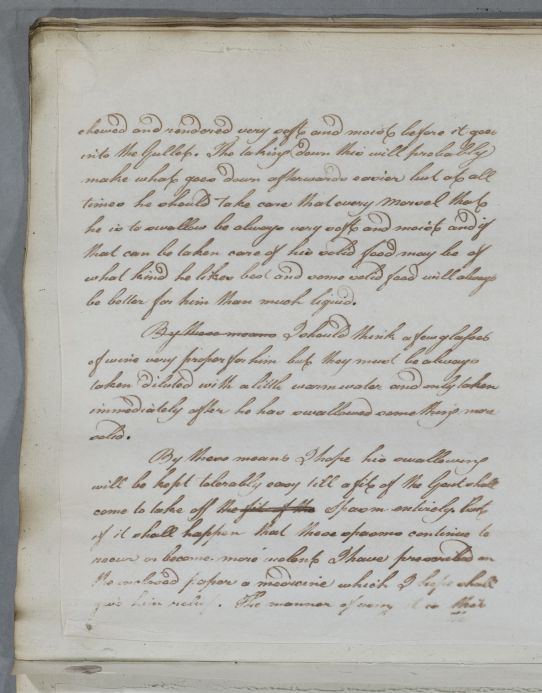 chewed and rendered very soft and moist before it goes
into the Gullet. The taking down this will probably
make what goes down afterwards easier but at all
times he should take care that every Morsel that
he is to swallow be always very soft and moist and if
that can be taken care of his solid food may be of
what kind he likes best and some solid food will always
be better for him than much liquid.
By these means I should think a few glasses
of wine very proper for him but they must be always
taken diluted with a little warm water and only taken
immediately after he has swallowed something more
solid.
By these means I hope his swallowing
will be kept tolerably easy till a fit of the Gout shall
come to take off the fit of the Spasm entirely. but
if it shall happen that these spasms continue to
recur or become more violent I have prescribed on
the inclosed paper a medicine which I hope shall
give him relief. The manner of using it is this
The